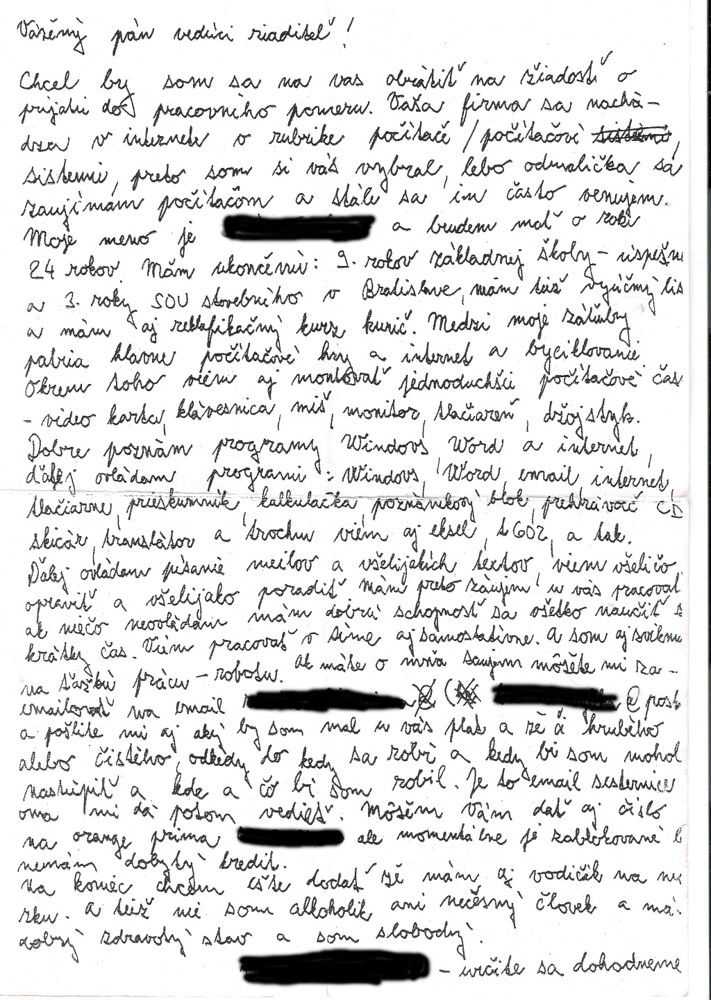 Vážený pán vedúci riaditeľ!
Chcel by som sa na vas obrátiť na žiadosť o
prijati do pracovního pomeru. Vaša firma sa nachá-
dza v internete o rubrike počítače/počítačové
sistemi, preto som si vás vybral, lebo odmalička sa
zaujímam počítačom a stále sa im často venujem.
Moje meno je a budem mať o rok
24 rokov Mám ukončenú: 9. rokov základnej školy - uspešne
a 3. roky SOU stovebního v Bratislave, mám též vyúčný lis
a mám aj reklafikačný kurz kurič. Medzi moje záľuby
patria hlavne počítačové hry a internet a byciklovanie
Okrem toho viem aj montovať jednoduchšii počítačové čas
- video karta, klávesnica, miš, monitor, tlačiareň, džojstyk.
Dobre poznám programy Windovs Word a internet,
ďalej ovládam programi: Windovs, Word, email, internet,
tlačiarne, prieskumník, kalkulačka poznámkový blok, prehrávač CD
skicár, translátor a trochu viem aj eksel, t602, a tak.
Ďalej ovládam písanie meilov a všelijakích textov, viem všeličo
opraviť a všelijako poradiť mám preto záujem u vás pracovat
ak niečo neovládam mám dobrú schopnosť sa všetko naučiť z
krátky čas. Viem pracovať v tíme aj samostativne. A som aj zviknu
na ťažkú prácu - robotu. Ak máte o mňa saujem môsete mi za-
emailovať na email @ post
a pošlite mi aj aký by som mal u vás plat a zě či hrubého
alebo čistého, odkedy do kedy sa robí a kedy bi som mohol
nastúpiť a kde a čo bi som robil. Je to email sesternice
ona mi dá potom vedieť. Môsěm Vám dať aj číslo
na orange prima ale momentálne je zablokované
nemám dobytý kredit.
Na koniec chcem ešte dodať zě mám aj vodičák na
a též nie som alkoholik ani nečěsný človek a má-
dobrý zdravotný stav a som slobodný.
- určite sa dohodneme